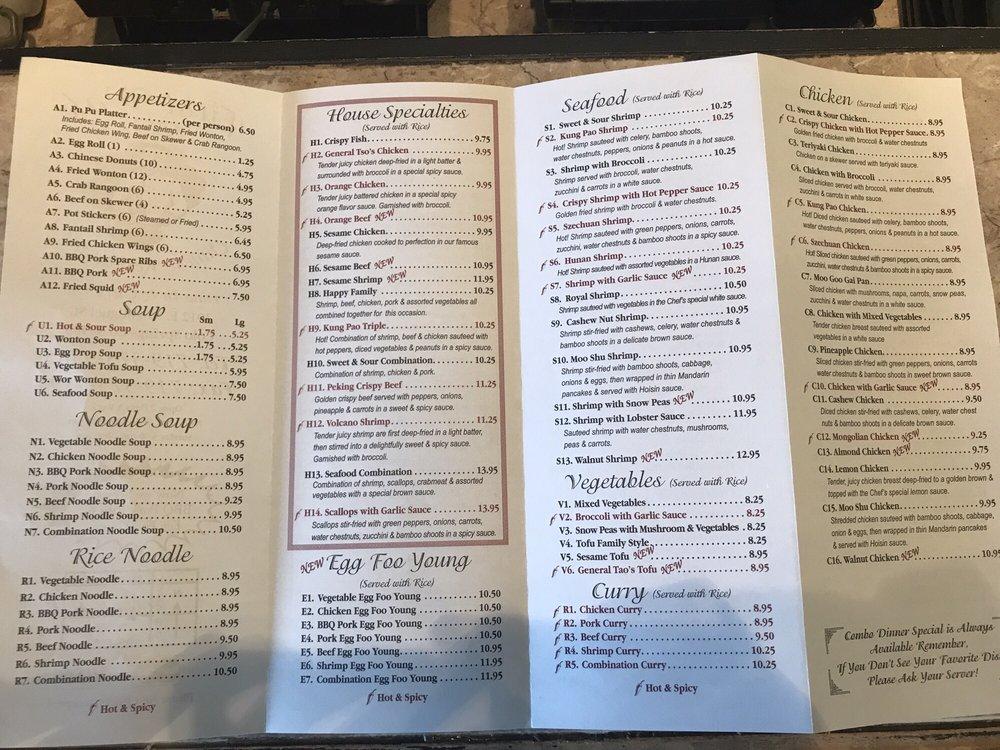 Appetizers
A1. Pu Pu Platter............(per person) 6.50
Includes: Egg Roll, Fantail Shrimp, Fried Wonton,
Fried Chicken Wing, Beef on Skewer & Crab Rangoon.
A2. Egg Roll (1) ........ 1.25
A3. Chinese Donuts (10) ........ 4.75
A4. Fried Wonton (12) ........ 4.95
A5. Crab Rangoon (6) ........ 4.95
A6. Beef on Skewer (4) ........ 5.25
A7. Pot Stickers (6) (Steamed or Fried) ..... 5.95
A8. Fantail Shrimp (6) ........ 6.45
A9. Fried Chicken Wings (6) ........ 6.50
A10. BBQ Pork Spare Ribs NEW ........ 6.95
A11. BBQ Pork NEW ........ 6.95
A12. Fried Squid NEW ........ 7.50
Soup Sm Lg
U1. Hot & Sour Soup ........1.75 ...5.25
U2. Wonton Soup ........1.75 ...5.25
U3. Egg Drop Soup ........1.75 ...5.25
U4. Vegetable Tofu Soup ........ 5.95
U5. Wor Wonton Soup ........ 7.50
U6. Seafood Soup ........ 7.50
Noodle Soup
N1. Vegetable Noodle Soup ........ 8.95
N2. Chicken Noodle Soup ........ 8.95
N3. BBQ Pork Noodle Soup ........ 8.95
N4. Pork Noodle Soup ........ 8.95
N5. Beef Noodle Soup ........ 9.25
N6. Shrimp Noodle Soup ........ 9.95
N7. Combination Noodle Soup ........ 10.50
Rice Noodle
R1. Vegetable Noodle........ 8.95
R2. Chicken Noodle........ 8.95
R3. BBQ Pork Noodle........ 8.95
R4. Pork Noodle........ 8.95
R5. Beef Noodle ........ 9.50
R6. Shrimp Noodle ........ 9.95
R7. Combination Noodle........ 10.50
Hot & Spicy
House Specialties
(Served with Rice)
H1. Crispy Fish........ 9.75
H2. General Tso's Chicken ........ 9.95
Tender juicy chicken deep-fried in a light batter &
surrounded with broccoli in a special spicy sauce.
H3. Orange Chicken........ 9.95
Tender juicy battered chicken in a special spicy
orange flavor sauce. Garnished with broccoli.
H4. Orange Beef NEW ........ 10.95
H5. Sesame Chicken........ 9.95
Deep-fried chicken cooked to perfection in our famous
sesame sauce.
H6. Sesame Beef NEW ........ 10.95
H7. Sesame Shrimp NEW ........ 11.95
H8. Happy Family ........ 10.25
Shrimp, beef, chicken, pork & assorted vegetables all
combined together for this occasion.
H9. Kung Pao Triple........ 10.25
Hot! Combination of shrimp, beef & chicken sauteed with
hot peppers, diced vegetables & peanuts in a spicy sauce.
H10. Sweet & Sour Combination........ 10.25
Combination of shrimp, chicken & pork.
H11. Peking Crispy Beef ........ 11.25
Golden crispy beef served with peppers, onions,
pineapple & carrots in a sweet & spicy sauce.
H12. Volcano Shrimp........ 11.25
Tender juicy shrimp are first deep-fried in a light batter,
then stirred into a delightfully sweet & spicy sauce.
Garnished with broccoli.
H13. Seafood Combination ........ 13.95
Combination of shrimp, scallops, crabmeat & assorted
vegetables with a special brown sauce.
H14. Scallops with Garlic Sauce ........ 13.95
Scallops stir-fried with green peppers, onions, carrots,
water chestnuts, zucchini & bamboo shoots in a spicy sauce.
NEW Egg Foo Young
(Served with Rice)
E1. Vegetable Egg Foo Young ........ 10.50
E2. Chicken Egg Foo Young ........ 10.50
E3. BBQ Pork Egg Foo Young ........ 10.50
E4. Pork Egg Foo Young ........ 10.50
E5. Beef Egg Foo Young........ 10.95
E6. Shrimp Egg Foo Young ........ 11.95
E7. Combination Egg Foo Young ........ 11.95
Hot & Spicy
Seafood (Served with Rice)
S1. Sweet & Sour Shrimp ........ 10.25
S2. Kung Pao Shrimp ........ 10.25
Hot! Shrimp sauteed with celery, bamboo shoots,
water chestnuts, peppers, onions & peanuts in a hot sauce.
S3. Shrimp with Broccoli ........ 10.25
Shrimp served with broccoli, water chestnuts,
zucchini & carrots in a white sauce.
S4. Crispy Shrimp with Hot Pepper Sauce 10.25
Golden fried shrimp with broccoli & water chestnuts.
S5. Szechuan Shrimp........ 10.25
Hot! Shrimp sauteed with green peppers, onions, carrots,
zucchini, water chestnuts & bamboo shoots in a spicy sauce.
S6. Hunan Shrimp ........ 10.25
Hot! Shrimp sauteed with assorted vegetables in a Hunan sauce.
S7. Shrimp with Garlic Sauce NEW ........ 10.25
S8. Royal Shrimp ........ 10.50
Shrimp sauteed with vegetables in the Chef's special white sauce.
S9. Cashew Nut Shrimp........ 10.95
Shrimp stir-fried with cashews, celery, water chestnuts &
bamboo shoots in a delicate brown sauce.
S10. Moo Shu Shrimp........ 10.95
Shrimp stir-fried with bamboo shoots, cabbage,
onions & eggs, then wrapped in thin Mandarin
pancakes & served with Hoisin sauce.
S11. Shrimp with Snow Peas NEW ........ 10.95
S12. Shrimp with Lobster Sauce ........ 11.95
Sauteed shrimp with water chestnuts, mushrooms,
peas & carrots.
S13. Walnut Shrimp NEW ........ 12.95
Vegetables (Served with Rice)
V1. Mixed Vegetables........ 8.25
V2. Broccoli with Garlic Sauce ........ 8.25
V3. Snow Peas with Mushroom & Vegetables . 8.25
V4. Tofu Family Style........ 8.25
V5. Sesame Tofu NEW ........ 8.95
V6. General Tao's Tofu NEW ........ 8.95
Curry (Served with Rice)
R1. Chicken Curry ........ 8.95
R2. Pork Curry ........ 8.95
R3. Beef Curry ........ 9.50
R4. Shrimp Curry........ 10.25
R5. Combination Curry ........ 10.25
Hot & Spicy
Chicken (Served with Rice)
C1. Sweet & Sour Chicken ........ 8.95
C2. Crispy Chicken with Hot Pepper Sauce. 8.95
Golden fried chicken with broccoli & water chestnuts
C3. Teriyaki Chicken........ 8.95
Chicken on a skewer served with teriyaki sauce.
C4. Chicken with Broccoli ........ 8.95
Sliced chicken served with broccoli, water chestnuts,
zucchini & carrots in a white sauce.
C5. Kung Pao Chicken........ 8.95
Hot! Diced chicken sauteed with celery, bamboo shoots,
water chestnuts, peppers, onions & peanuts in a hot sauce.
C6. Szechuan Chicken........ 8.95
Hot! Sliced chicken sauteed with green peppers, onions, carrots,
zucchini, water chestnuts & bamboo shoots in a spicy sauce.
C7. Moo Goo Gai Pan........ 8.95
Sliced chicken with mushrooms, napa, carrots, snow peas,
zucchini & water chestnuts in a white sauce.
C8. Chicken with Mixed Vegetables ........ 8.95
Tender chicken breast sauteed with assorted
vegetables in a white sauce
C9. Pineapple Chicken........ 8.95
Sliced chicken stir-fried with green peppers, onions, carrots
water chestnuts & bamboo shoots in sweet brown sauce.
C10. Chicken with Garlic Sauce NEW ........ 8.95
C11. Cashew Chicken ........ 9.50
Diced chicken stir-fried with cashews, celery, water chest
nuts & bamboo shoots in a delicate brown sauce.
C12. Mongolian Chicken NEW ........ 9.25
C13. Almond Chicken NEW ........ 9.75
C14. Lemon Chicken ........ 9.95
Tender, juicy chicken breast deep-fried to a golden brown &
topped with the Chef's special lemon sauce.
C15. Moo Shu Chicken........ 9.95
Shredded chicken sauteed with bamboo shoots, cabbage,
onion & eggs, then wrapped in thin Mandarin pancakes
& served with Hoisin sauce.
C16. Walnut Chicken NEW ........ 10.95
Combo Dinner Special is Always
Available Remember,
If You Don't See Your Favorite Dis
Please Ask Your Server!